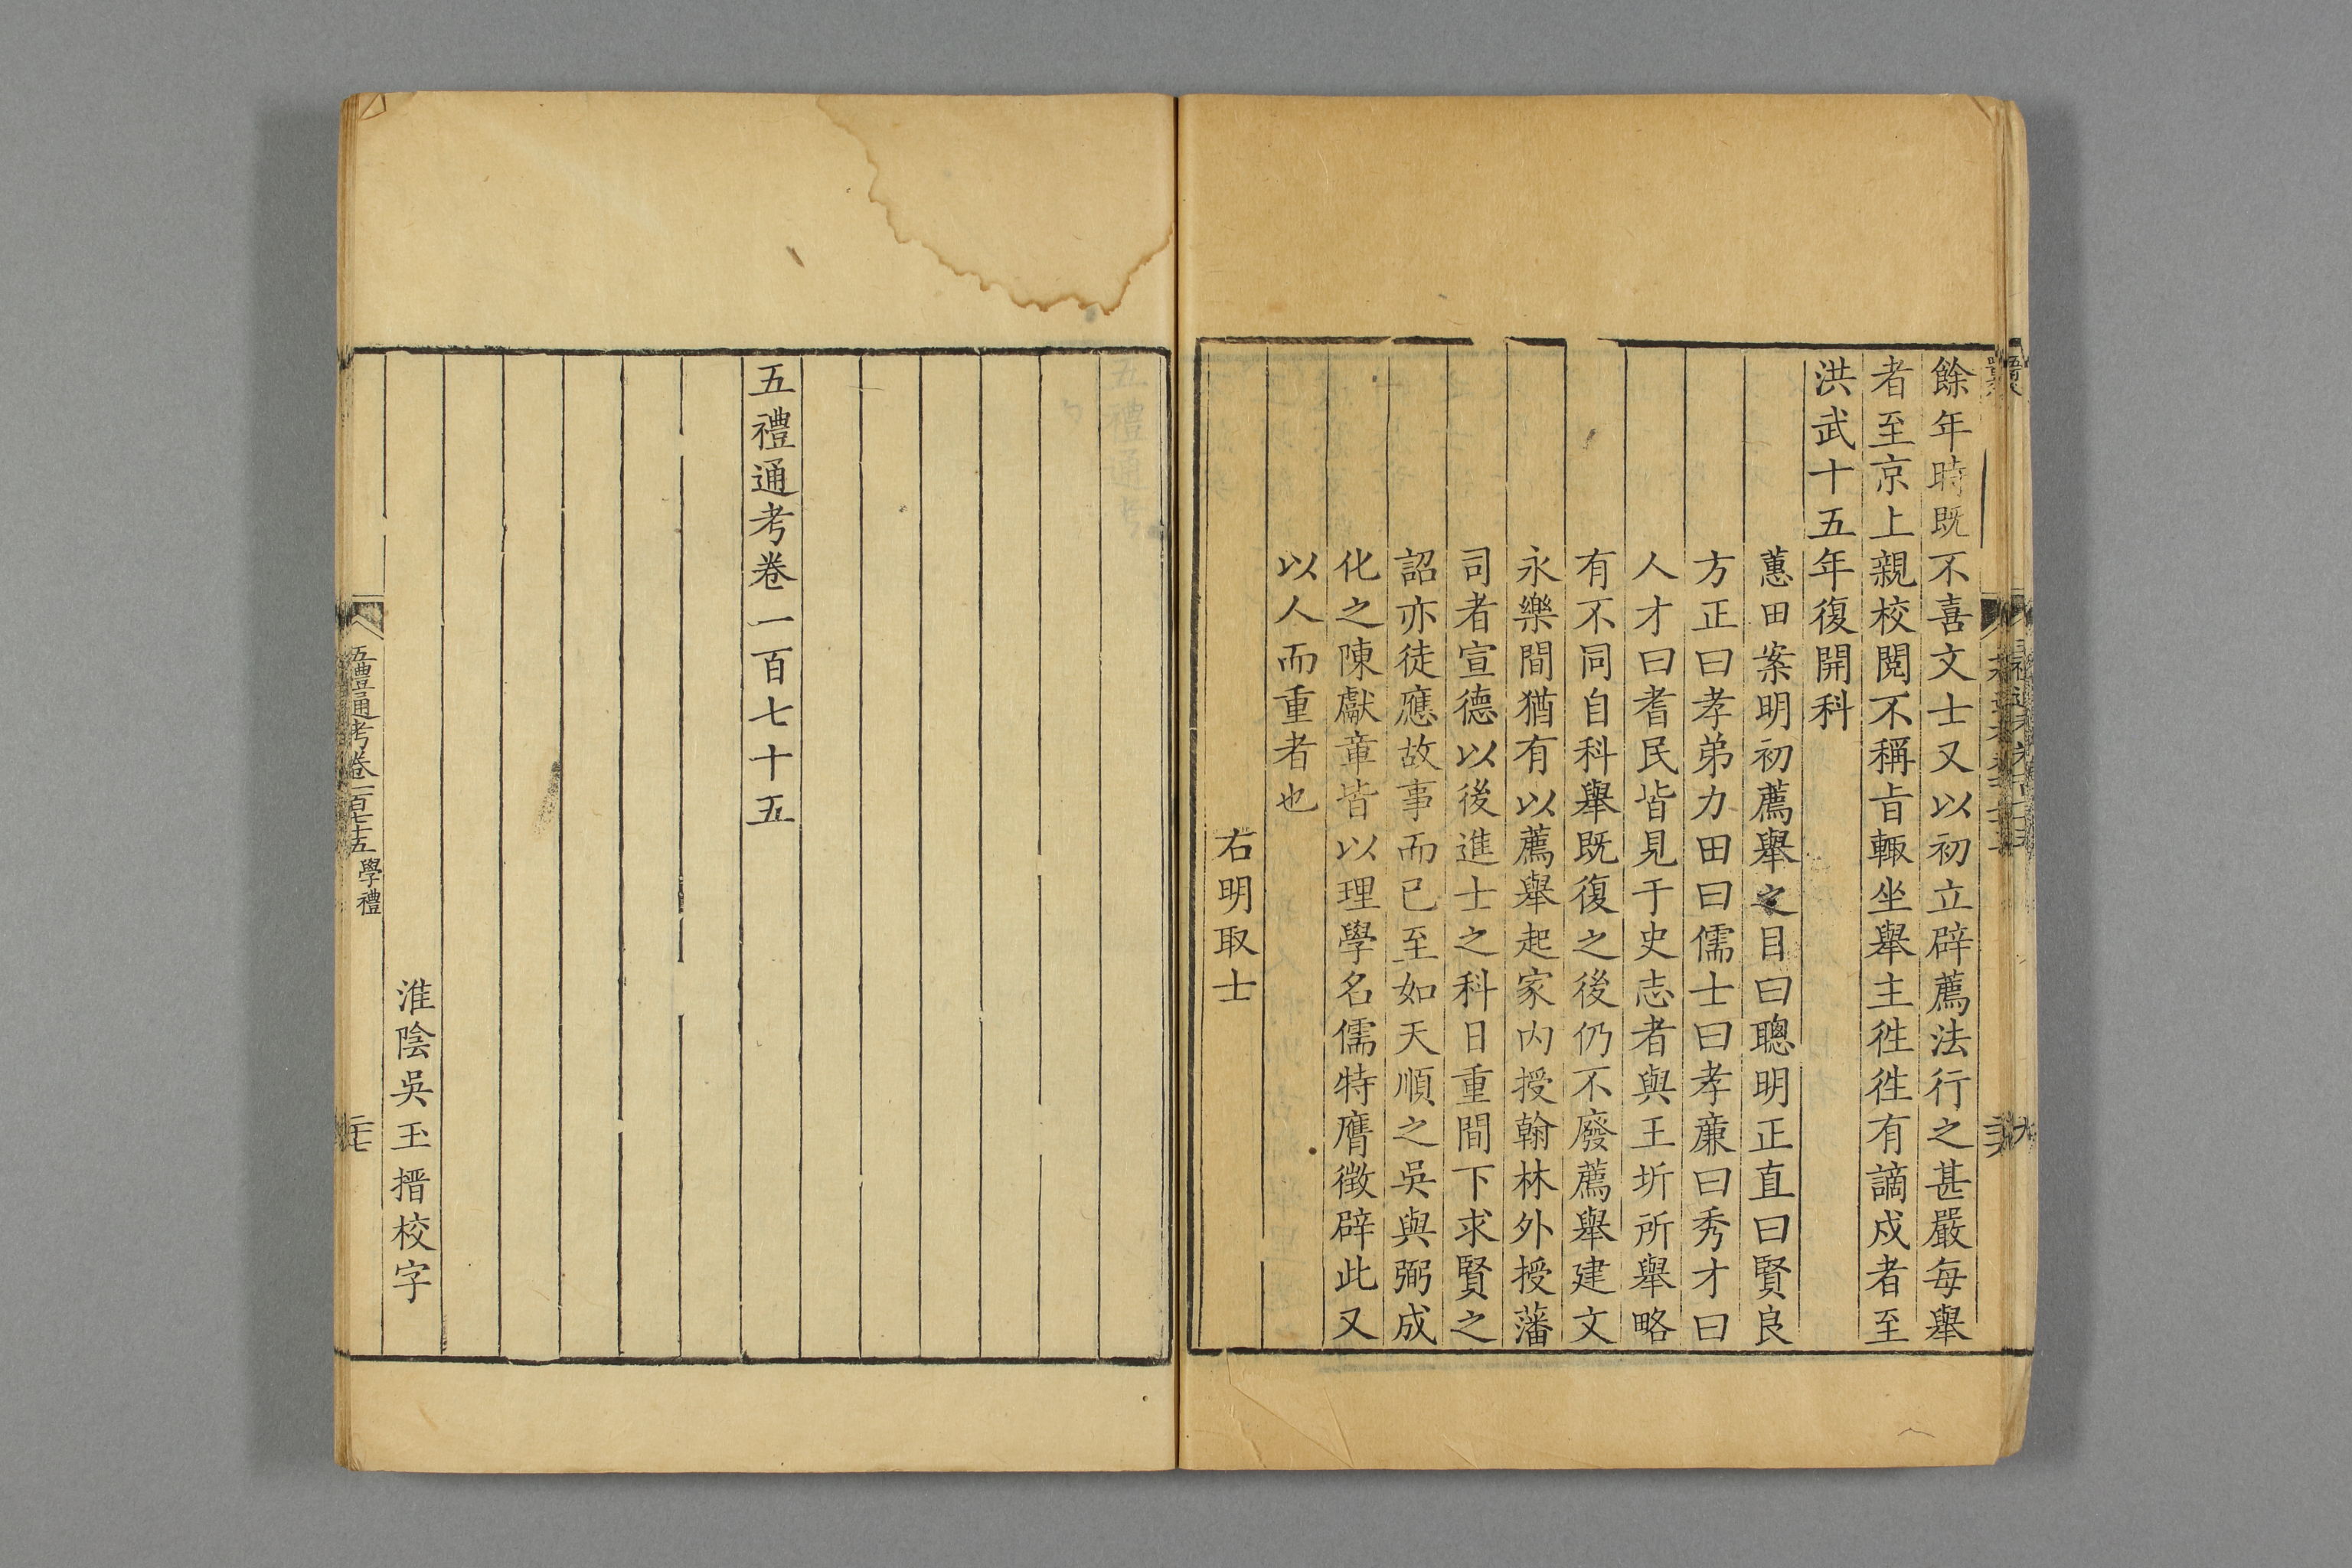 餘年時既不喜文士又以初立辟薦法行之甚嚴每舉
者至京上親校閱不稱旨輙坐舉主徃徃有謫戍者至
洪武十五年復開科
蕙田案明初薦舉之目曰聰明正直曰賢良
方正曰孝弟力田曰儒士曰孝亷曰秀才曰
人才曰耆民皆見于史志者與王圻所舉略
有不同自科舉既復之後仍不廢薦舉建文
永樂間猶有以薦舉起家内授翰林外授藩
司者宣德以後進士之科日重間下求賢之
詔亦徒應故事而已至如天順之吳與弼成
化之陳獻章皆以理學名儒特膺徴辟此又
以人而重者也
右明取士
五禮通考卷一百七十五
淮陰吳玉搢校字
五禮通考卷一百七十五 學禮
二十七